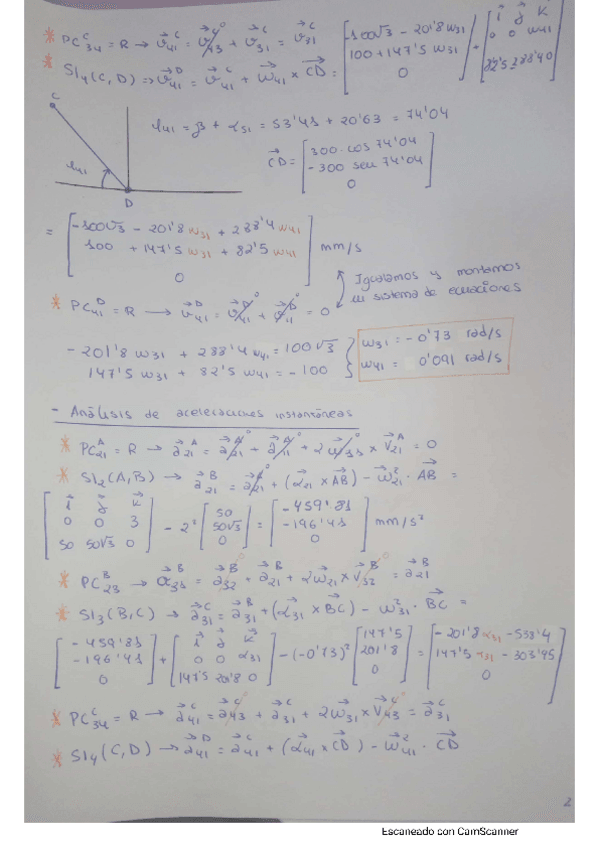 * PC₃₄ᶜ = R → v⃗₄₁ᶜ = v⃗₄₃ᶜ⁰ + v⃗₃₁ᶜ = v⃗₃₁ᶜ
* SI₄(C,D) ⇒ v⃗₄₁ᴰ = v⃗₄₁ᶜ + ω⃗₄₁ × CD⃗ = [-100√3 - 201'8 ω₃₁ ; 100 + 147'5 ω₃₁ ; 0] + [i⃗ j⃗ k⃗ ; 0 0 ω₄₁ ; 82'5 -288'4 0]
C
φ₄₁
D
φ₄₁ = β + α₃₁ = 53'41 + 20'63 = 74'04
CD⃗ = [300 · cos 74'04 ; -300 sen 74'04 ; 0]
= [-100√3 - 201'8 ω₃₁ + 288'4 ω₄₁ ; 100 + 147'5 ω₃₁ + 82'5 ω₄₁ ; 0] mm/s
Igualamos y montamos
un sistema de ecuaciones
* PC₄₁ᴰ = R → v⃗₄₁ᴰ = v⃗ᴰ⁰ + v⃗₁₁ᴰ⁰ = 0
-201'8 ω₃₁ + 288'4 ω₄₁ = 100√3
147'5 ω₃₁ + 82'5 ω₄₁ = -100
ω₃₁ = -0'73 rad/s
ω₄₁ = 0'091 rad/s
- Análisis de aceleraciones instantáneas
* PC₂₁ᴬ = R → a⃗₂₁ᴬ = a⃗₂₁ᴬ⁰ + a⃗₁₁ᴬ⁰ + 2ω⃗ × v⃗₂₁ᴬ = 0
* SI₂(A,B) → a⃗₂₁ᴮ = a⃗₂₁ᴬ⁰ + (α⃗₂₁ × AB⃗) - ω⃗₂₁² · AB⃗ =
[i⃗ j⃗ k⃗ ; 0 0 3 ; 50 50√3 0] - 2² [50 ; 50√3 ; 0] = [-459'81 ; -196'41 ; 0] mm/s²
* PC₂₃ᴮ → a⃗₃₁ᴮ = a⃗₃₂ᴮ⁰ + a⃗₂₁ᴮ + 2ω⃗₂₁ × v⃗₃₂ᴮ⁰ = a⃗₂₁ᴮ
* SI₃(B,C) → a⃗₃₁ᶜ = a⃗₃₁ᴮ + (α⃗₃₁ × BC⃗) - ω⃗₃₁² · BC⃗ =
[-459'81 ; -196'41 ; 0] + [i⃗ j⃗ k⃗ ; 0 0 α₃₁ ; 147'5 201'8 0] - (-0'73)² [147'5 ; 201'8 ; 0] = [-201'8 α₃₁ - 538'4 ; 147'5 α₃₁ - 303'95 ; 0]
* PC₃₄ᶜ = R → a⃗₄₁ᶜ = a⃗₄₃ᶜ⁰ + a⃗₃₁ᶜ + 2ω⃗₃₁ × v⃗₄₃ᶜ⁰ = a⃗₃₁ᶜ
* SI₄(C,D) → a⃗₄₁ᴰ = a⃗₄₁ᶜ + (α⃗₄₁ × CD⃗) - ω⃗₄₁² · CD⃗
2
Escaneado con CamScanner